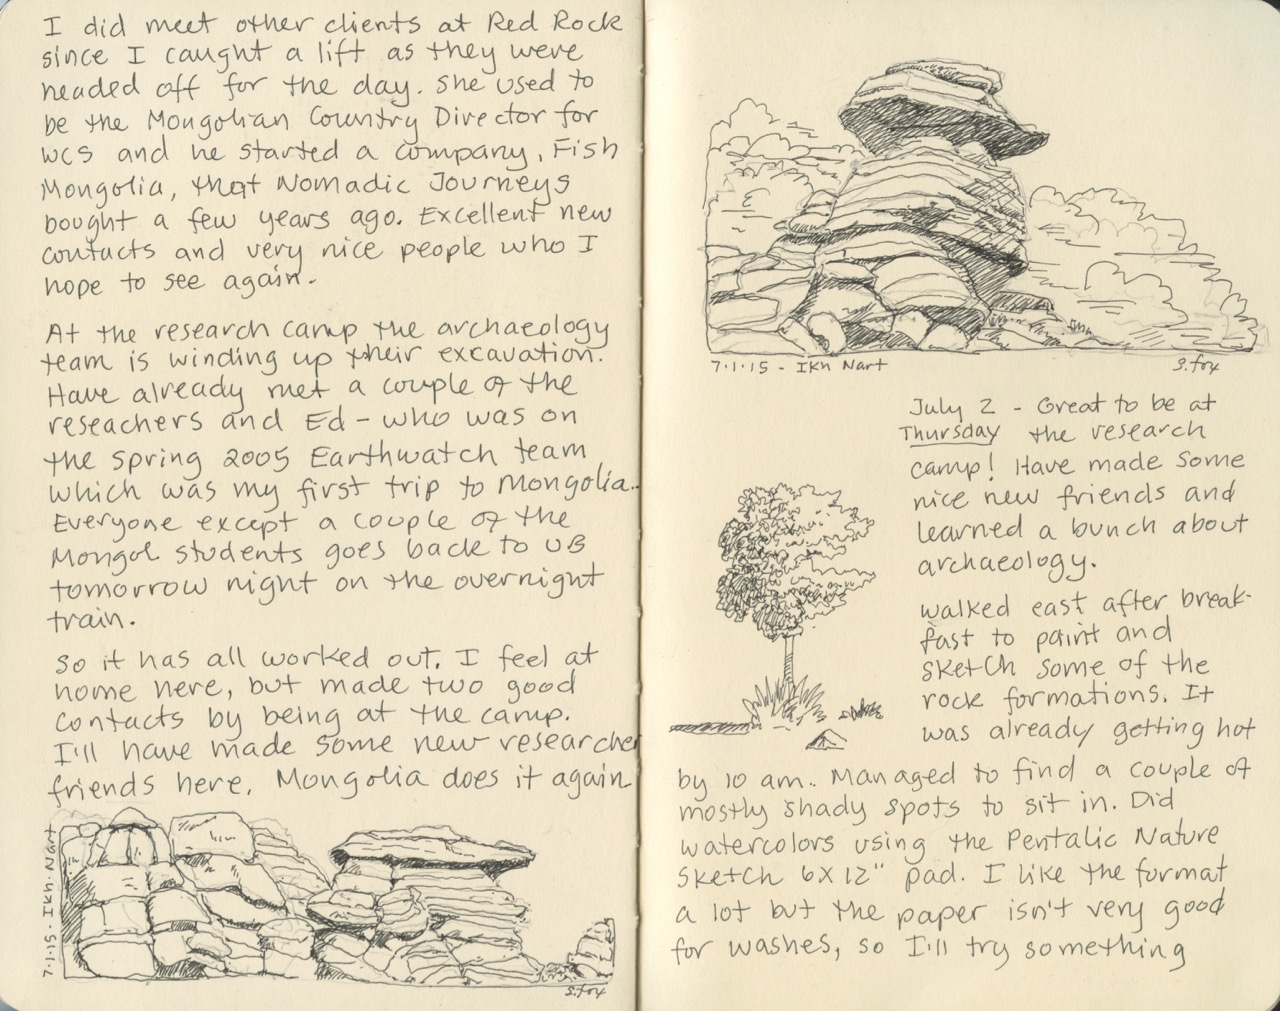 I did meet other clients at Red Rock
since I caught a lift as they were
headed off for the day. She used to
be the Mongolian Country Director for
WCS and he started a company, Fish
Mongolia, that Nomadic Journeys
bought a few years ago. Excellent new
contacts and very nice people who I
hope to see again.
At the research camp the archaeology
team is winding up their excavation.
Have already met a couple of the
reseachers and Ed - who was on
the spring 2005 Earthwatch team
which was my first trip to Mongolia..
Everyone except a couple of the
Mongol students goes back to UB
tomorrow night on the overnight
train.
So it has all worked out. I feel at
home here, but made two good
contacts by being at the camp.
I'll have made some new researcher
friends here. Mongolia does it again
7.1.15 - Ikh Nart
S. Fox
7.1.15 - Ikh Nart
S. Fox
July 2 - Great to be at
Thursday the research
camp! Have made some
nice new friends and
learned a bunch about
archaeology.
Walked east after break-
fast to paint and
sketch some of the
rock formations. It
was already getting hot
by 10 am.. Managed to find a couple of
mostly shady spots to sit in. Did
watercolors using the Pentalic Nature
Sketch 6X12" pad. I like the format
a lot but the paper isn't very good
for washes, so I'll try something